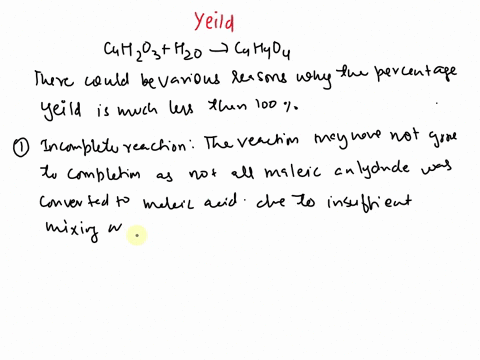 Yeild
C4H2O3 + H2O → C4H4O4
There could be various reasons why the percentage
yeild is much less then 100%.
① Incomplete reaction: The reaction may have not gone
to completion as not all maleic anhydride was
converted to maleic acid. due to insufficient
mixing